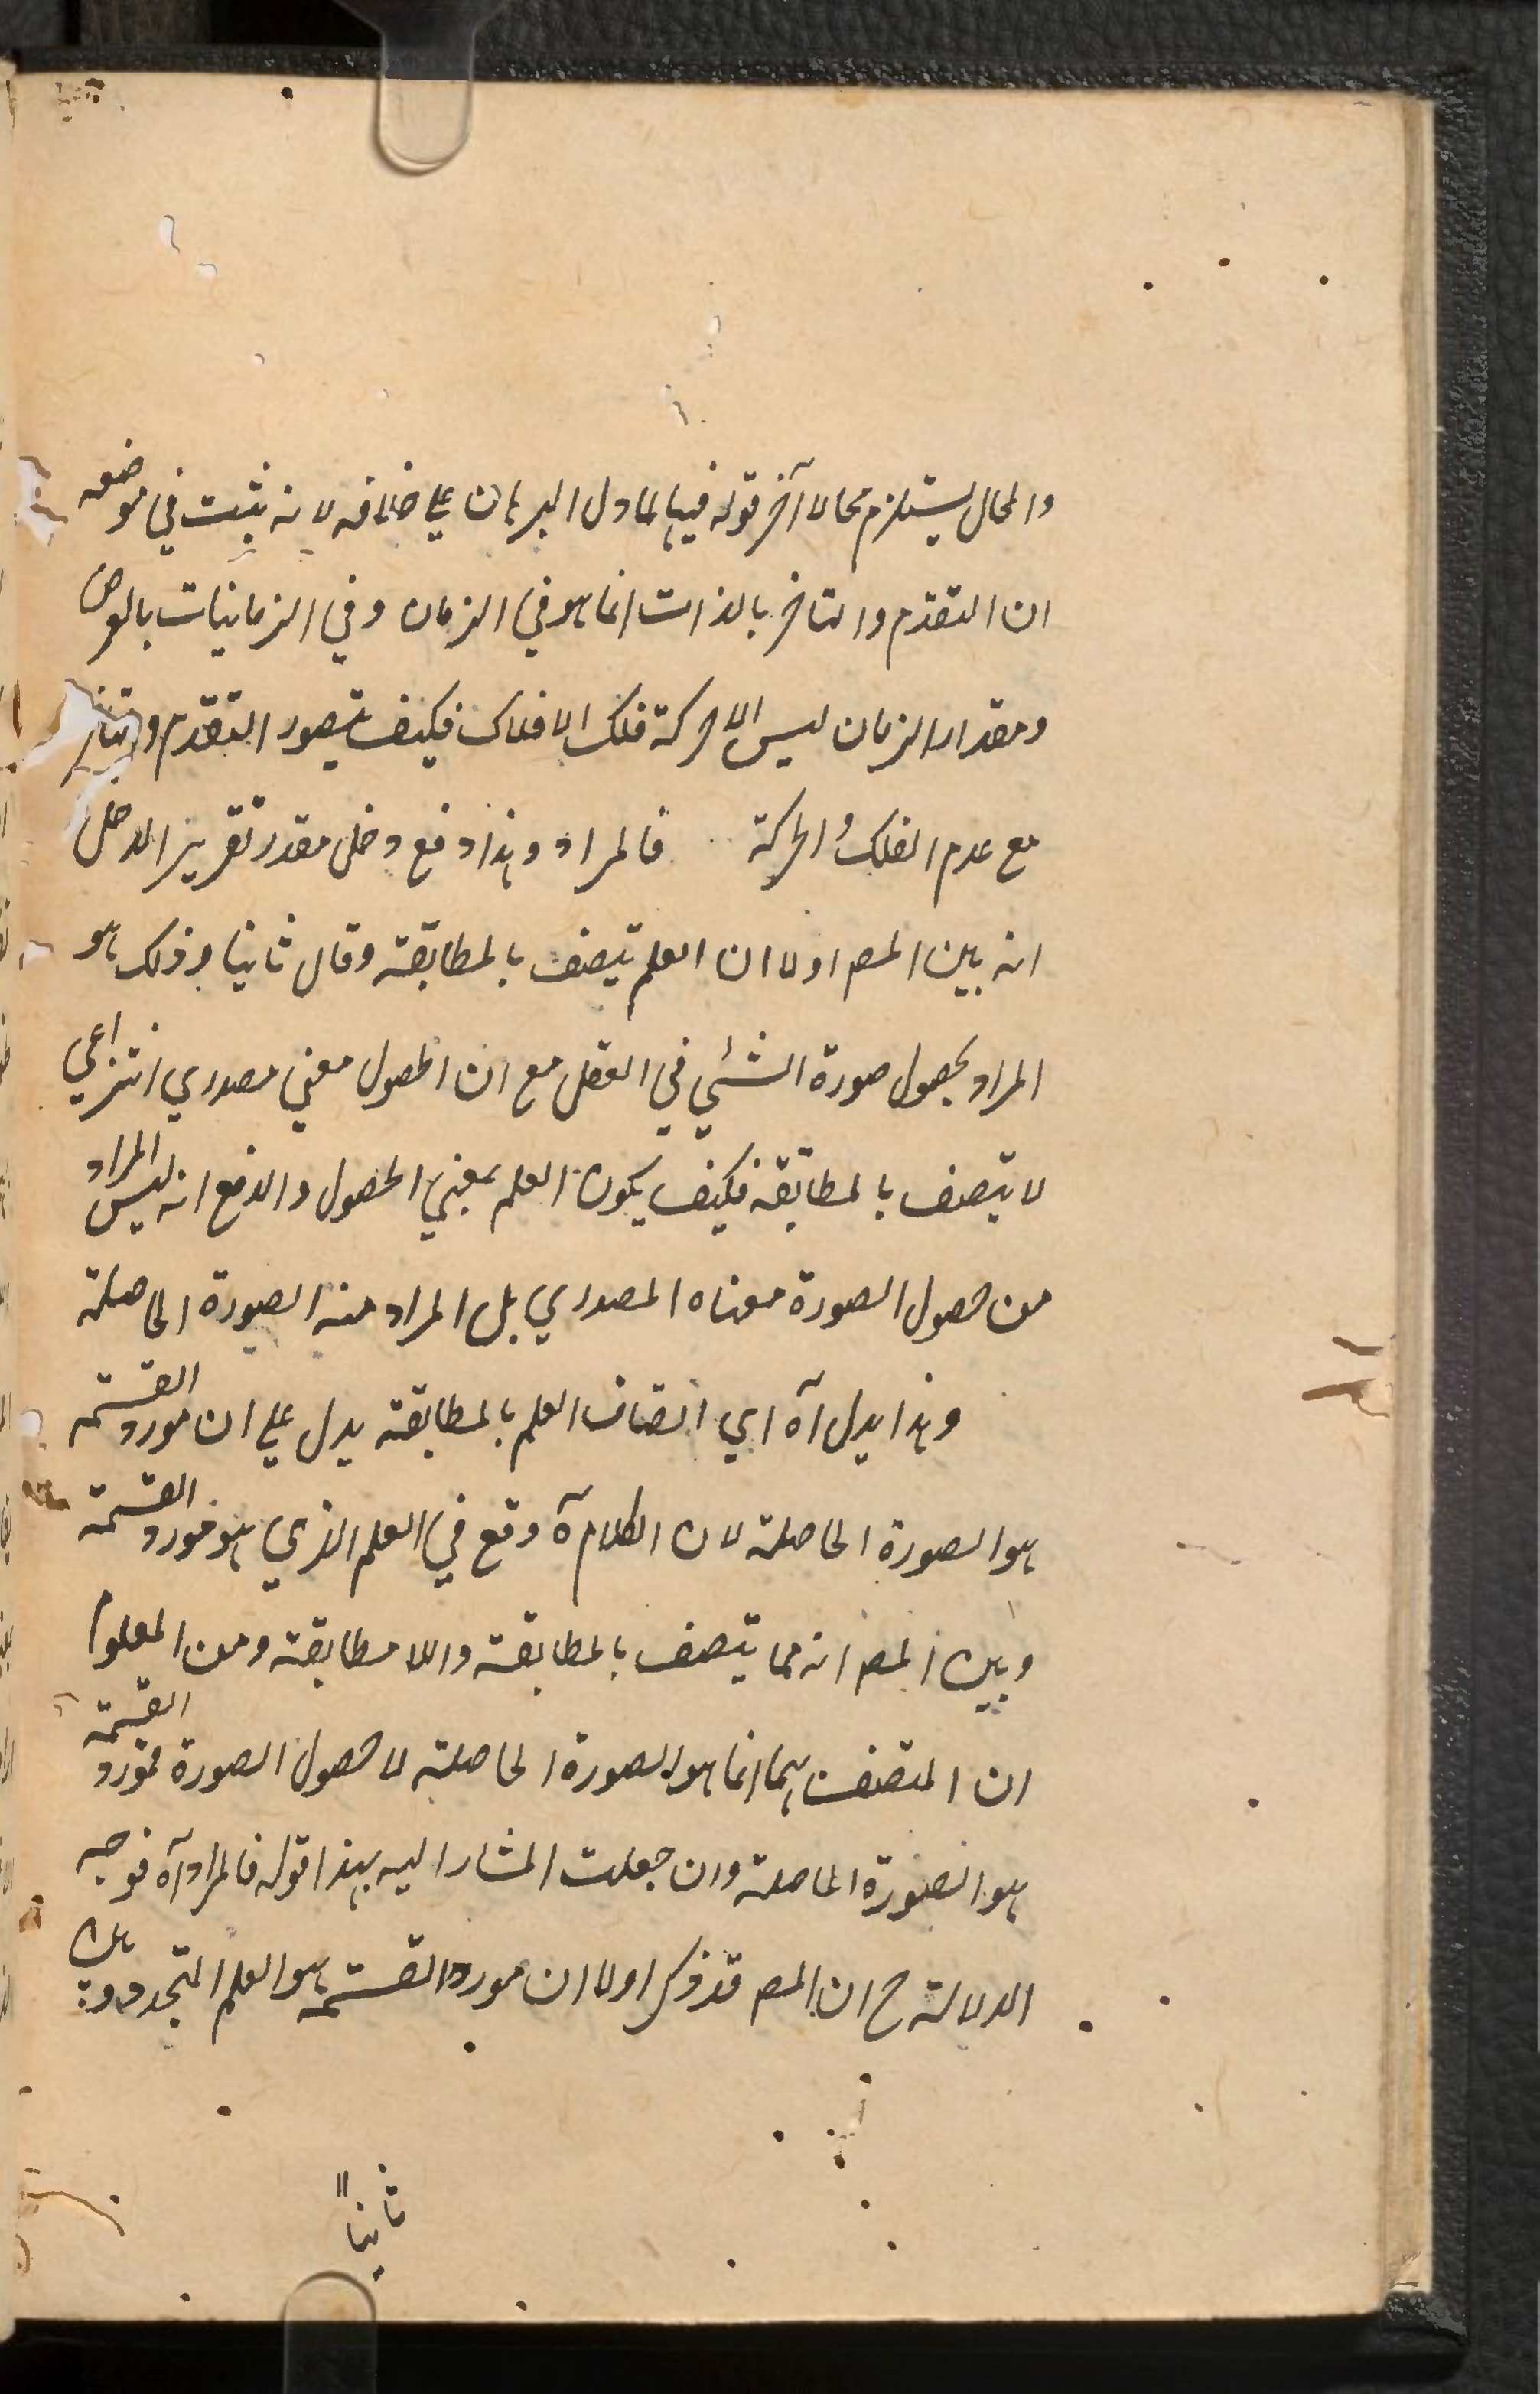 والمحال يستلزم محالا آخر قوله فيها لما دل البرهان علي خلافه لانه ثبت في موضعه
ان التقدم والتاخر بالذات انما هو في الزمان وفي الزمانيات بالعرض
ومقدار الزمان ليس الا حركة فلك الافلاك فكيف يتصور التقدم والتاخر
مع عدم الفلك والحركة فالمراد وهذا دفع دخل مقدر تقرير الدخل
انه بين المصـ اولا ان العلم يتصف بالمطابقة وقال ثانيا وذلك هو
المراد بحصول صورة الشئي في العقل مع ان الحصول معني مصدري انتزاعي
لا يتصف بالمطابقة فكيف يكون العلم بمعني الحصول والدفع انه ليس المراد
من حصول الصورة معناه المصدري بل المراد منه الصورة الحاصلة
وهذا يدل آه اي اتصاف العلم بالمطابقة يدل علي ان مورد القسمة
هو الصورة الحاصلة لان الكلام آه وقع في العلم الذي هو مورد القسمة
وبين المصـ انه مما يتصف بالمطابقة واللا مطابقة ومن المعلوم
ان المتصف بهما انما هو الصورة الحاصلة لا حصول الصورة فمورد القسمة
هو الصورة الحاصلة وان جعلت المشار اليه بهذا قوله فالمراد آه فوجه
الدلالة ح ان المصـ قد ذكر اولا ان مورد القسمة هو العلم المتجدد وبين
ثانيا